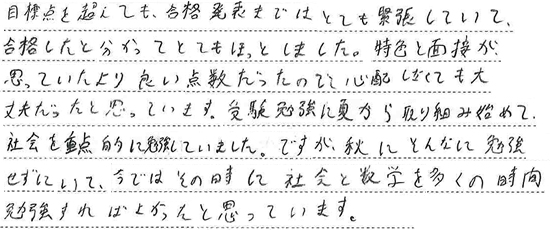 目標点を超えても、合格発表まではとても緊張していて、
合格したと分かってとてもほっとしました。特色と面接が
思っていたより良い点数だったのでそこ心配しなくても大
丈夫だったと思っています。受験勉強に夏から取り組み始めて、
社会を重点的に勉強していました。ですが、秋にそんなに勉強
せずにいて、今ではその時に社会と数学を多くの時間
勉強すればよかったと思っています。